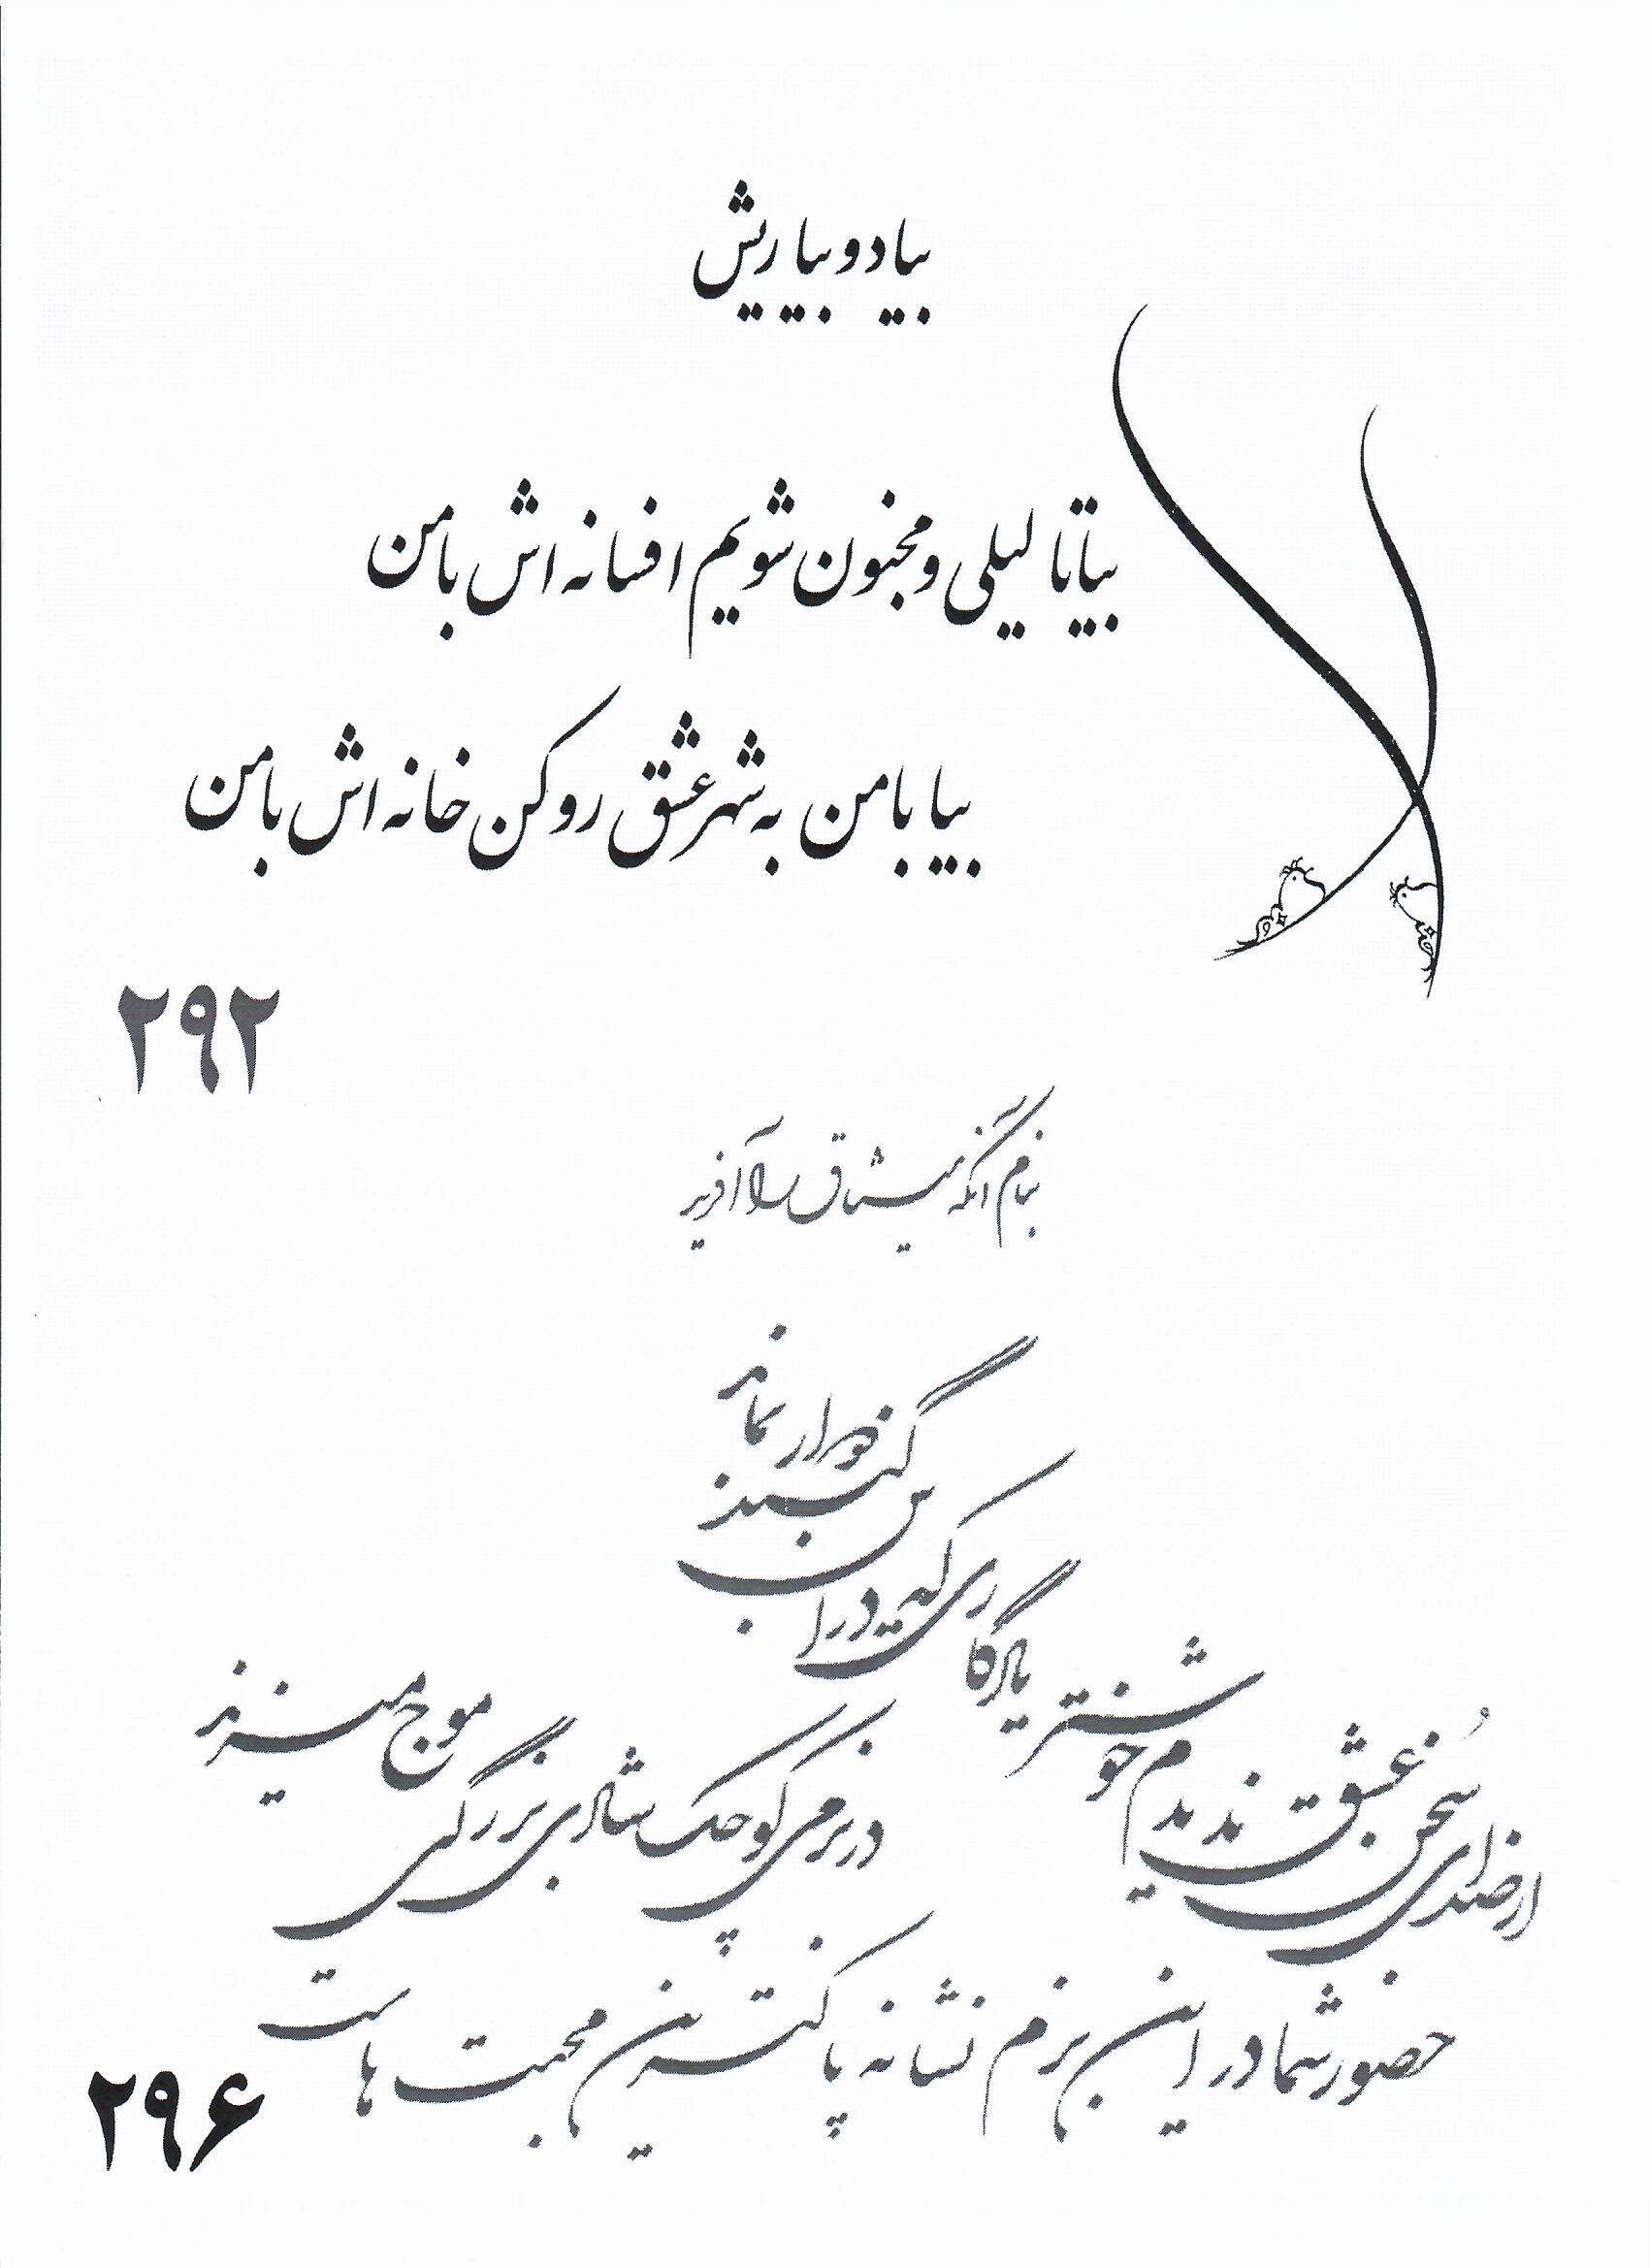 بیاد و بیاریش
بیا تا لیلی و مجنون شویم افسانه اش با من
بیا با من به شهر عشق رو کن خانه اش با من
۲۹۲
بنام آنکه میثاق را آفرید
از صدای سخن عشق ندیدم خوشتر
یادگاری که در این گنبد دوار بماند
در بزمی کوچک شادی بزرگی موج میزند
حضور شما در این بزم نشانه پاکترین محبت هاست
۲۹۶